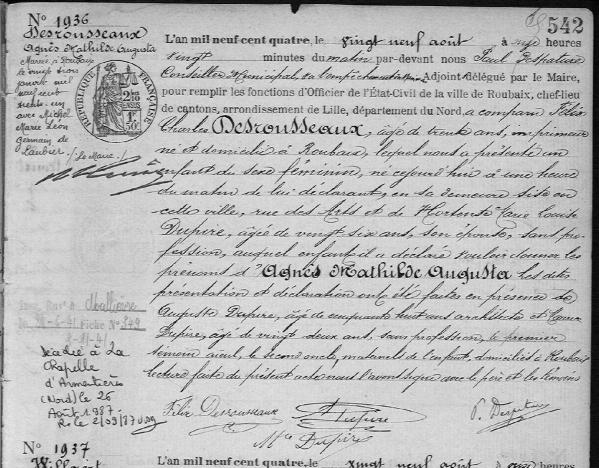 542
N° 1936
Desrousseaux
Agnès Mathilde Augusta
Mariée à Roubaix
le vingt trois
janvier mil
neuf cent
trente un
avec Michel
Marie Léon
Germain de
Laubier
Le Maire
RÉPUBLIQUE FRANÇAISE
L'an mil neuf cent quatre, le vingt neuf août à onze heures
vingt minutes du matin par-devant nous Paul Despatures
Conseiller Municipal, Adjoint délégué par le Maire,
pour remplir les fonctions d'Officier de l'État-Civil de la ville de Roubaix, chef-lieu
de cantons, arrondissement de Lille, département du Nord, a comparu Félix
Charles Desrousseaux, âgé de trente ans, imprimeur
né et domicilié à Roubaix, lequel nous a présenté un
enfant du sexe féminin, né ce jourd'hui à une heure
du matin de lui déclarant, en sa demeure sise en
cette ville, rue des Arts et de Hortense Marie Louise
Dupire, âgée de vingt six ans, son épouse, sans pro-
fession, auquel enfant il a déclaré vouloir donner les
prénoms d'Agnès Mathilde Augusta les dites
présentation et déclaration ont été faites en présence de
Auguste Dupire, âgé de cinquante huit ans architecte et
Dupire, âgé de vingt deux ans, sans profession, le premier
témoin aïeul, le second oncle, maternels de l'enfant, domiciliés à Roubaix
lecture faite du présent acte nous l'avons signé avec le père et les témoins
Félix Desrousseaux
A Dupire
P. Despatures
Dupire
Décédée à La
Chapelle
d'Armentières
(Nord) le 26
Août 1987
R. le 2/09/87
N° 1937
L'an mil neuf cent quatre, le vingt neuf août à onze heures